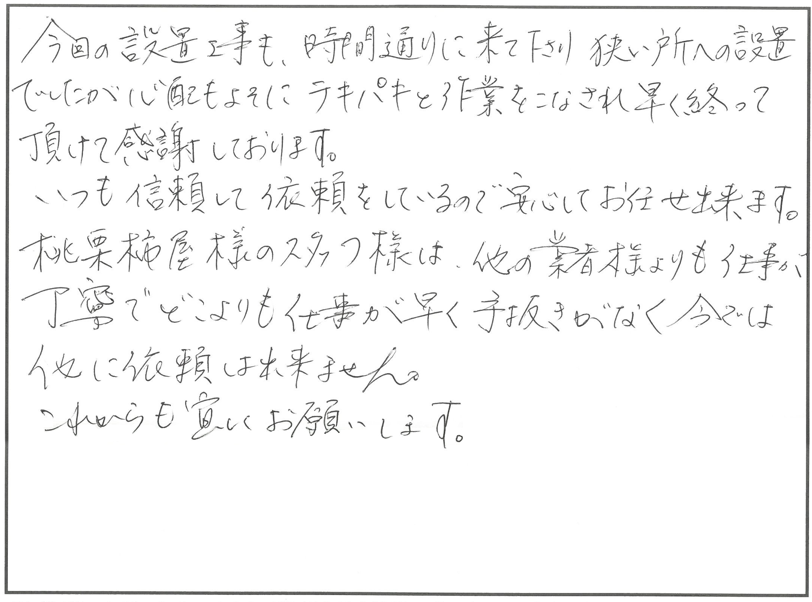 今回の設置工事も、時間通りに来て下さり 狭い所への設置
でしたが心配もよそに テキパキと作業をこなされ早く終って
頂けて感謝しております。
いつも信頼して依頼をしているので安心してお任せ出来ます。
桃栗柿屋様のスタッフ様は、他の業者様よりも仕事が
丁寧でどこよりも仕事が早く手抜きがなく今では
他に依頼は出来ません。
これからも宜しくお願いします。